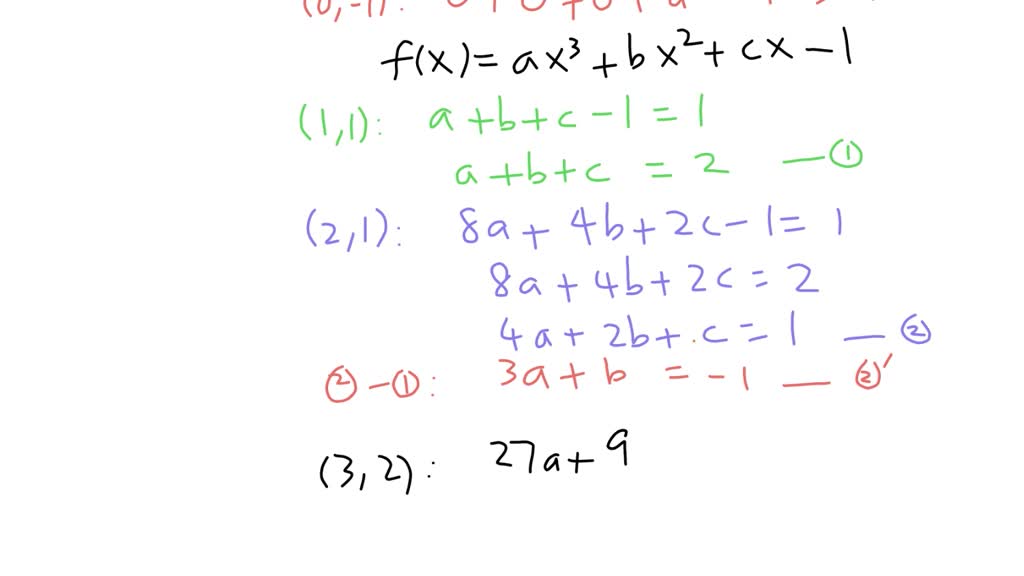 f(x) = ax³ + bx² + cx - 1
(1,1): a + b + c - 1 = 1
a + b + c = 2 — ①
(2,1): 8a + 4b + 2c - 1 = 1
8a + 4b + 2c = 2
4a + 2b + c = 1 — ②
② - ①: 3a + b = -1 — ②'
(3,2): 27a + 9